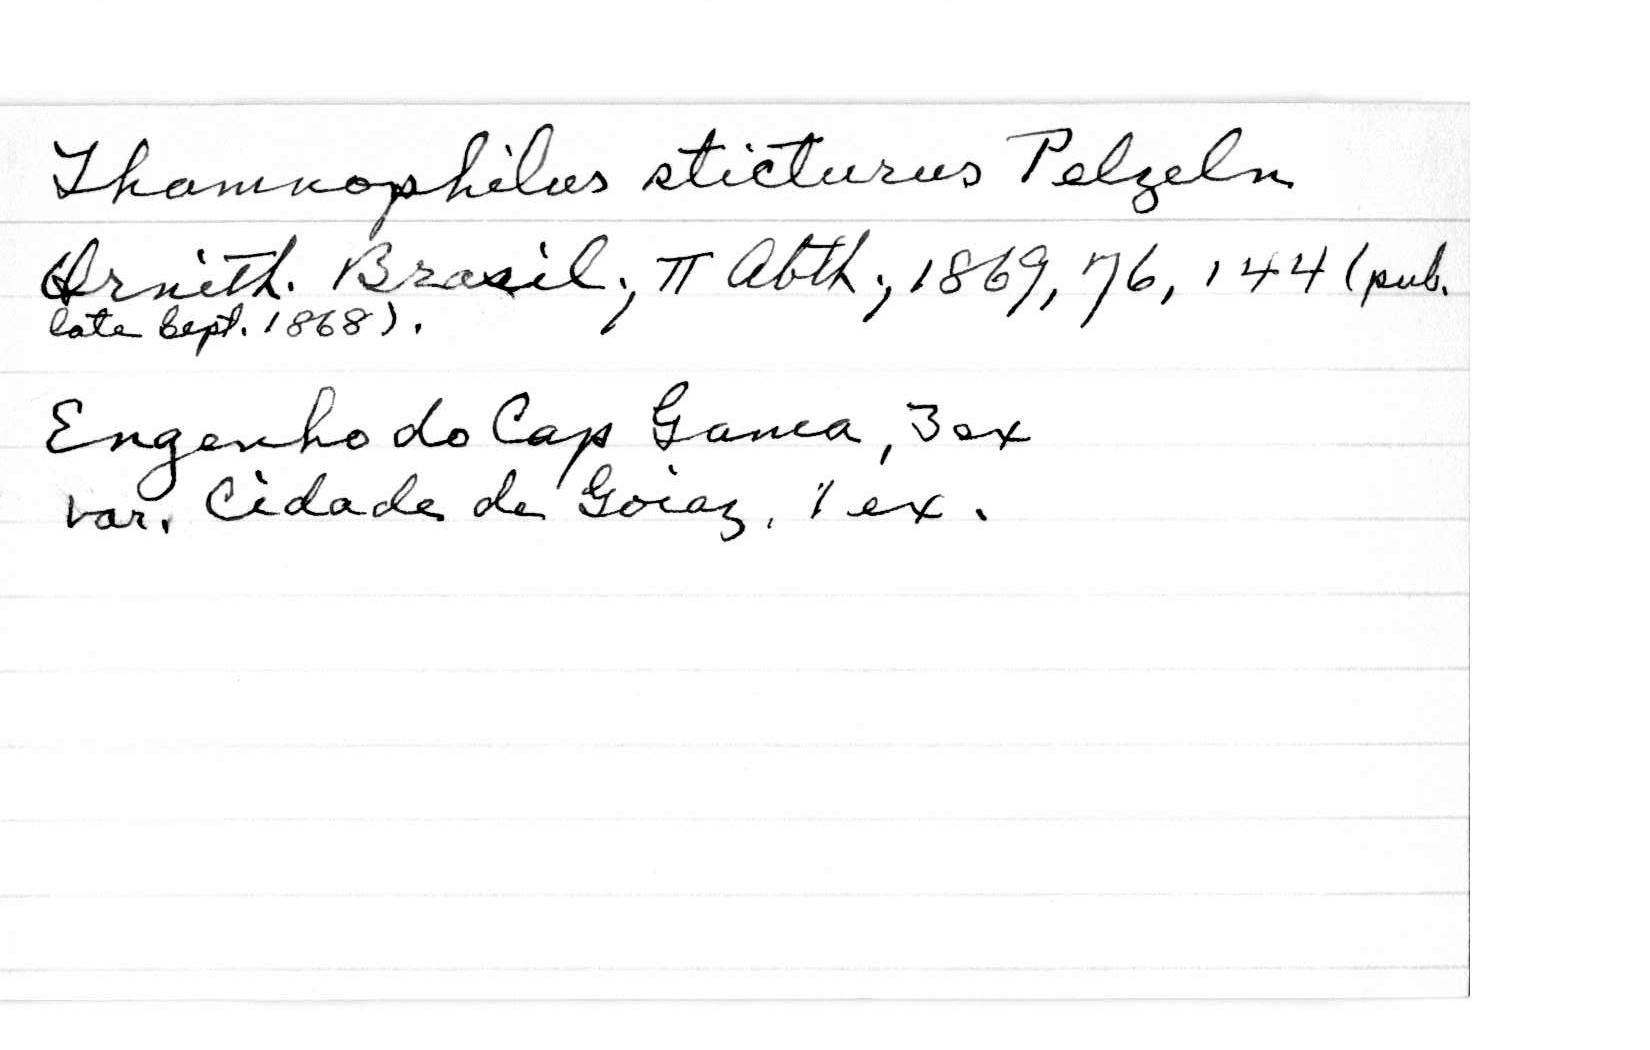 Thamnophilus sticturus Pelzeln
Ornith. Brasil., II Abth., 1869, 76, 144 (pub.
late Sept. 1868).
Engenho do Cap Gama, 3 ex
var. Cidade de Goiaz, 1 ex.